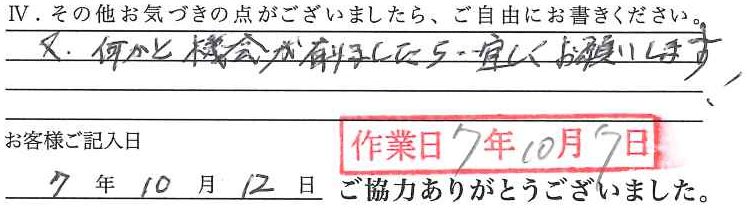 Ⅳ. その他お気づきの点がございましたら、ご自由にお書きください。
又、何かと機会が有りましたら、宜しくお願いします
お客様ご記入日
作業日 7年10月7日
7 年 10 月 12 日 ご協力ありがとうございました。